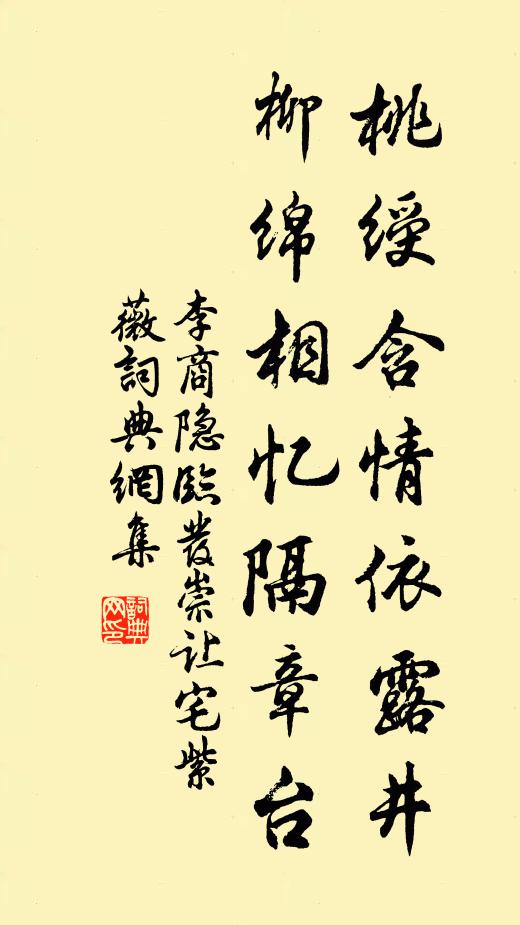 桃绶含情依露井
柳绵相忆隔章台
李商隐臨发崇让宅紫
薇詞典網集
詞典网印